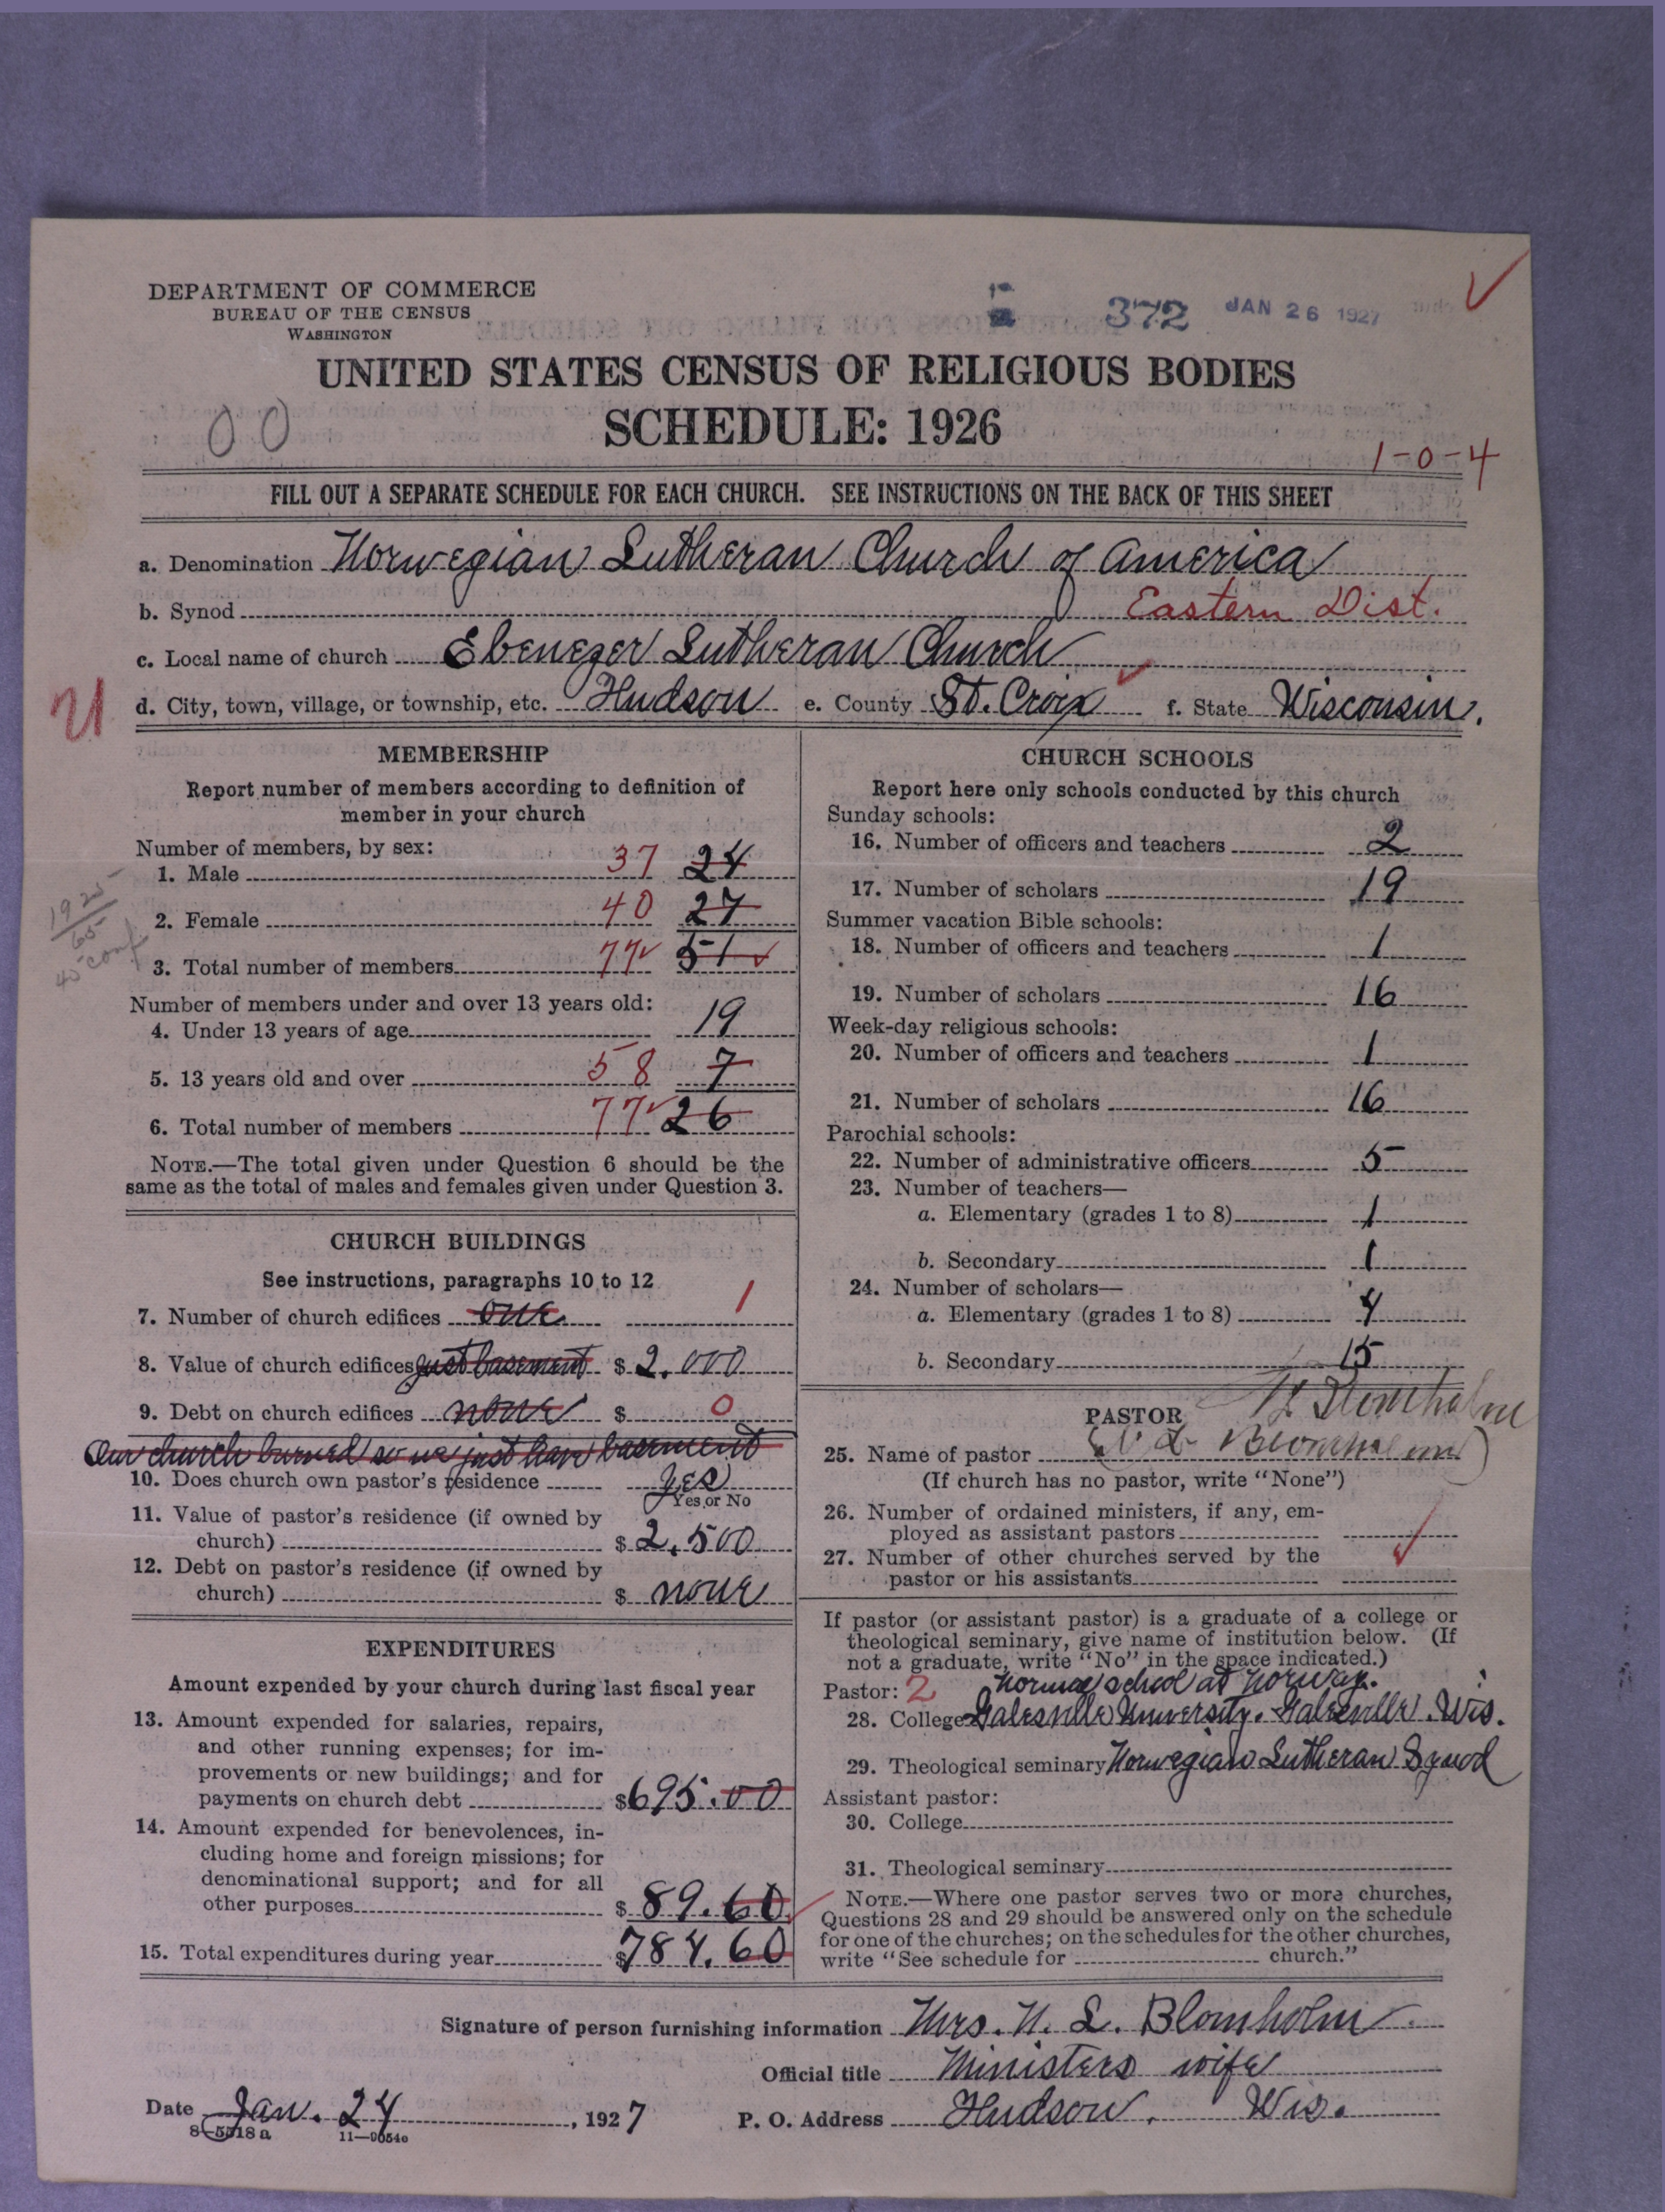 DEPARTMENT OF COMMERCE
BUREAU OF THE CENSUS
WASHINGTON
372 JAN 26 1927
UNITED STATES CENSUS OF RELIGIOUS BODIES
SCHEDULE: 1926
00
1-0-4
FILL OUT A SEPARATE SCHEDULE FOR EACH CHURCH. SEE INSTRUCTIONS ON THE BACK OF THIS SHEET
a. Denomination Norwegian Lutheran Church of America
b. Synod Eastern Dist.
c. Local name of church Ebenezer Lutheran Church
d. City, town, village, or township, etc. Hudson e. County St. Croix f. State Wisconsin.
MEMBERSHIP
Report number of members according to definition of
member in your church
Number of members, by sex:
1. Male 37 24
2. Female 40 27
3. Total number of members 77 51
1925
65
45 conf
Number of members under and over 13 years old:
4. Under 13 years of age 19
5. 13 years old and over 58 7
6. Total number of members 77 26
NOTE.—The total given under Question 6 should be the
same as the total of males and females given under Question 3.
CHURCH BUILDINGS
See instructions, paragraphs 10 to 12
7. Number of church edifices one 1
8. Value of church edifices just basement $ 2.000
9. Debt on church edifices none $ 0
Our church burned so we just have basement
10. Does church own pastor's residence yes
Yes or No
11. Value of pastor's residence (if owned by
church) $ 2.500
12. Debt on pastor's residence (if owned by
church) $ none
EXPENDITURES
Amount expended by your church during last fiscal year
13. Amount expended for salaries, repairs,
and other running expenses; for im-
provements or new buildings; and for
payments on church debt $695.00
14. Amount expended for benevolences, in-
cluding home and foreign missions; for
denominational support; and for all
other purposes $ 89.60
15. Total expenditures during year $784.60
CHURCH SCHOOLS
Report here only schools conducted by this church
Sunday schools:
16. Number of officers and teachers 2
17. Number of scholars 19
Summer vacation Bible schools:
18. Number of officers and teachers 1
19. Number of scholars 16
Week-day religious schools:
20. Number of officers and teachers 1
21. Number of scholars 16
Parochial schools:
22. Number of administrative officers 5
23. Number of teachers—
a. Elementary (grades 1 to 8) 1
b. Secondary 1
24. Number of scholars—
a. Elementary (grades 1 to 8) 4
b. Secondary 15
PASTOR
25. Name of pastor
(If church has no pastor, write "None")
26. Number of ordained ministers, if any, em-
ployed as assistant pastors
27. Number of other churches served by the
pastor or his assistants
If pastor (or assistant pastor) is a graduate of a college or
theological seminary, give name of institution below. (If
not a graduate, write "No" in the space indicated.)
Pastor: 2 Normal school at Norway.
28. College Galesville University. Galesville. Wis.
29. Theological seminary Norwegian Lutheran Synod
Assistant pastor:
30. College
31. Theological seminary
NOTE.—Where one pastor serves two or more churches,
Questions 28 and 29 should be answered only on the schedule
for one of the churches; on the schedules for the other churches,
write "See schedule for church."
Signature of person furnishing information Mrs. N. L. Blomholm
Official title Ministers wife
Date Jan. 24, 1927 P. O. Address Hudson, Wis.
8-5518 a 11—9054c